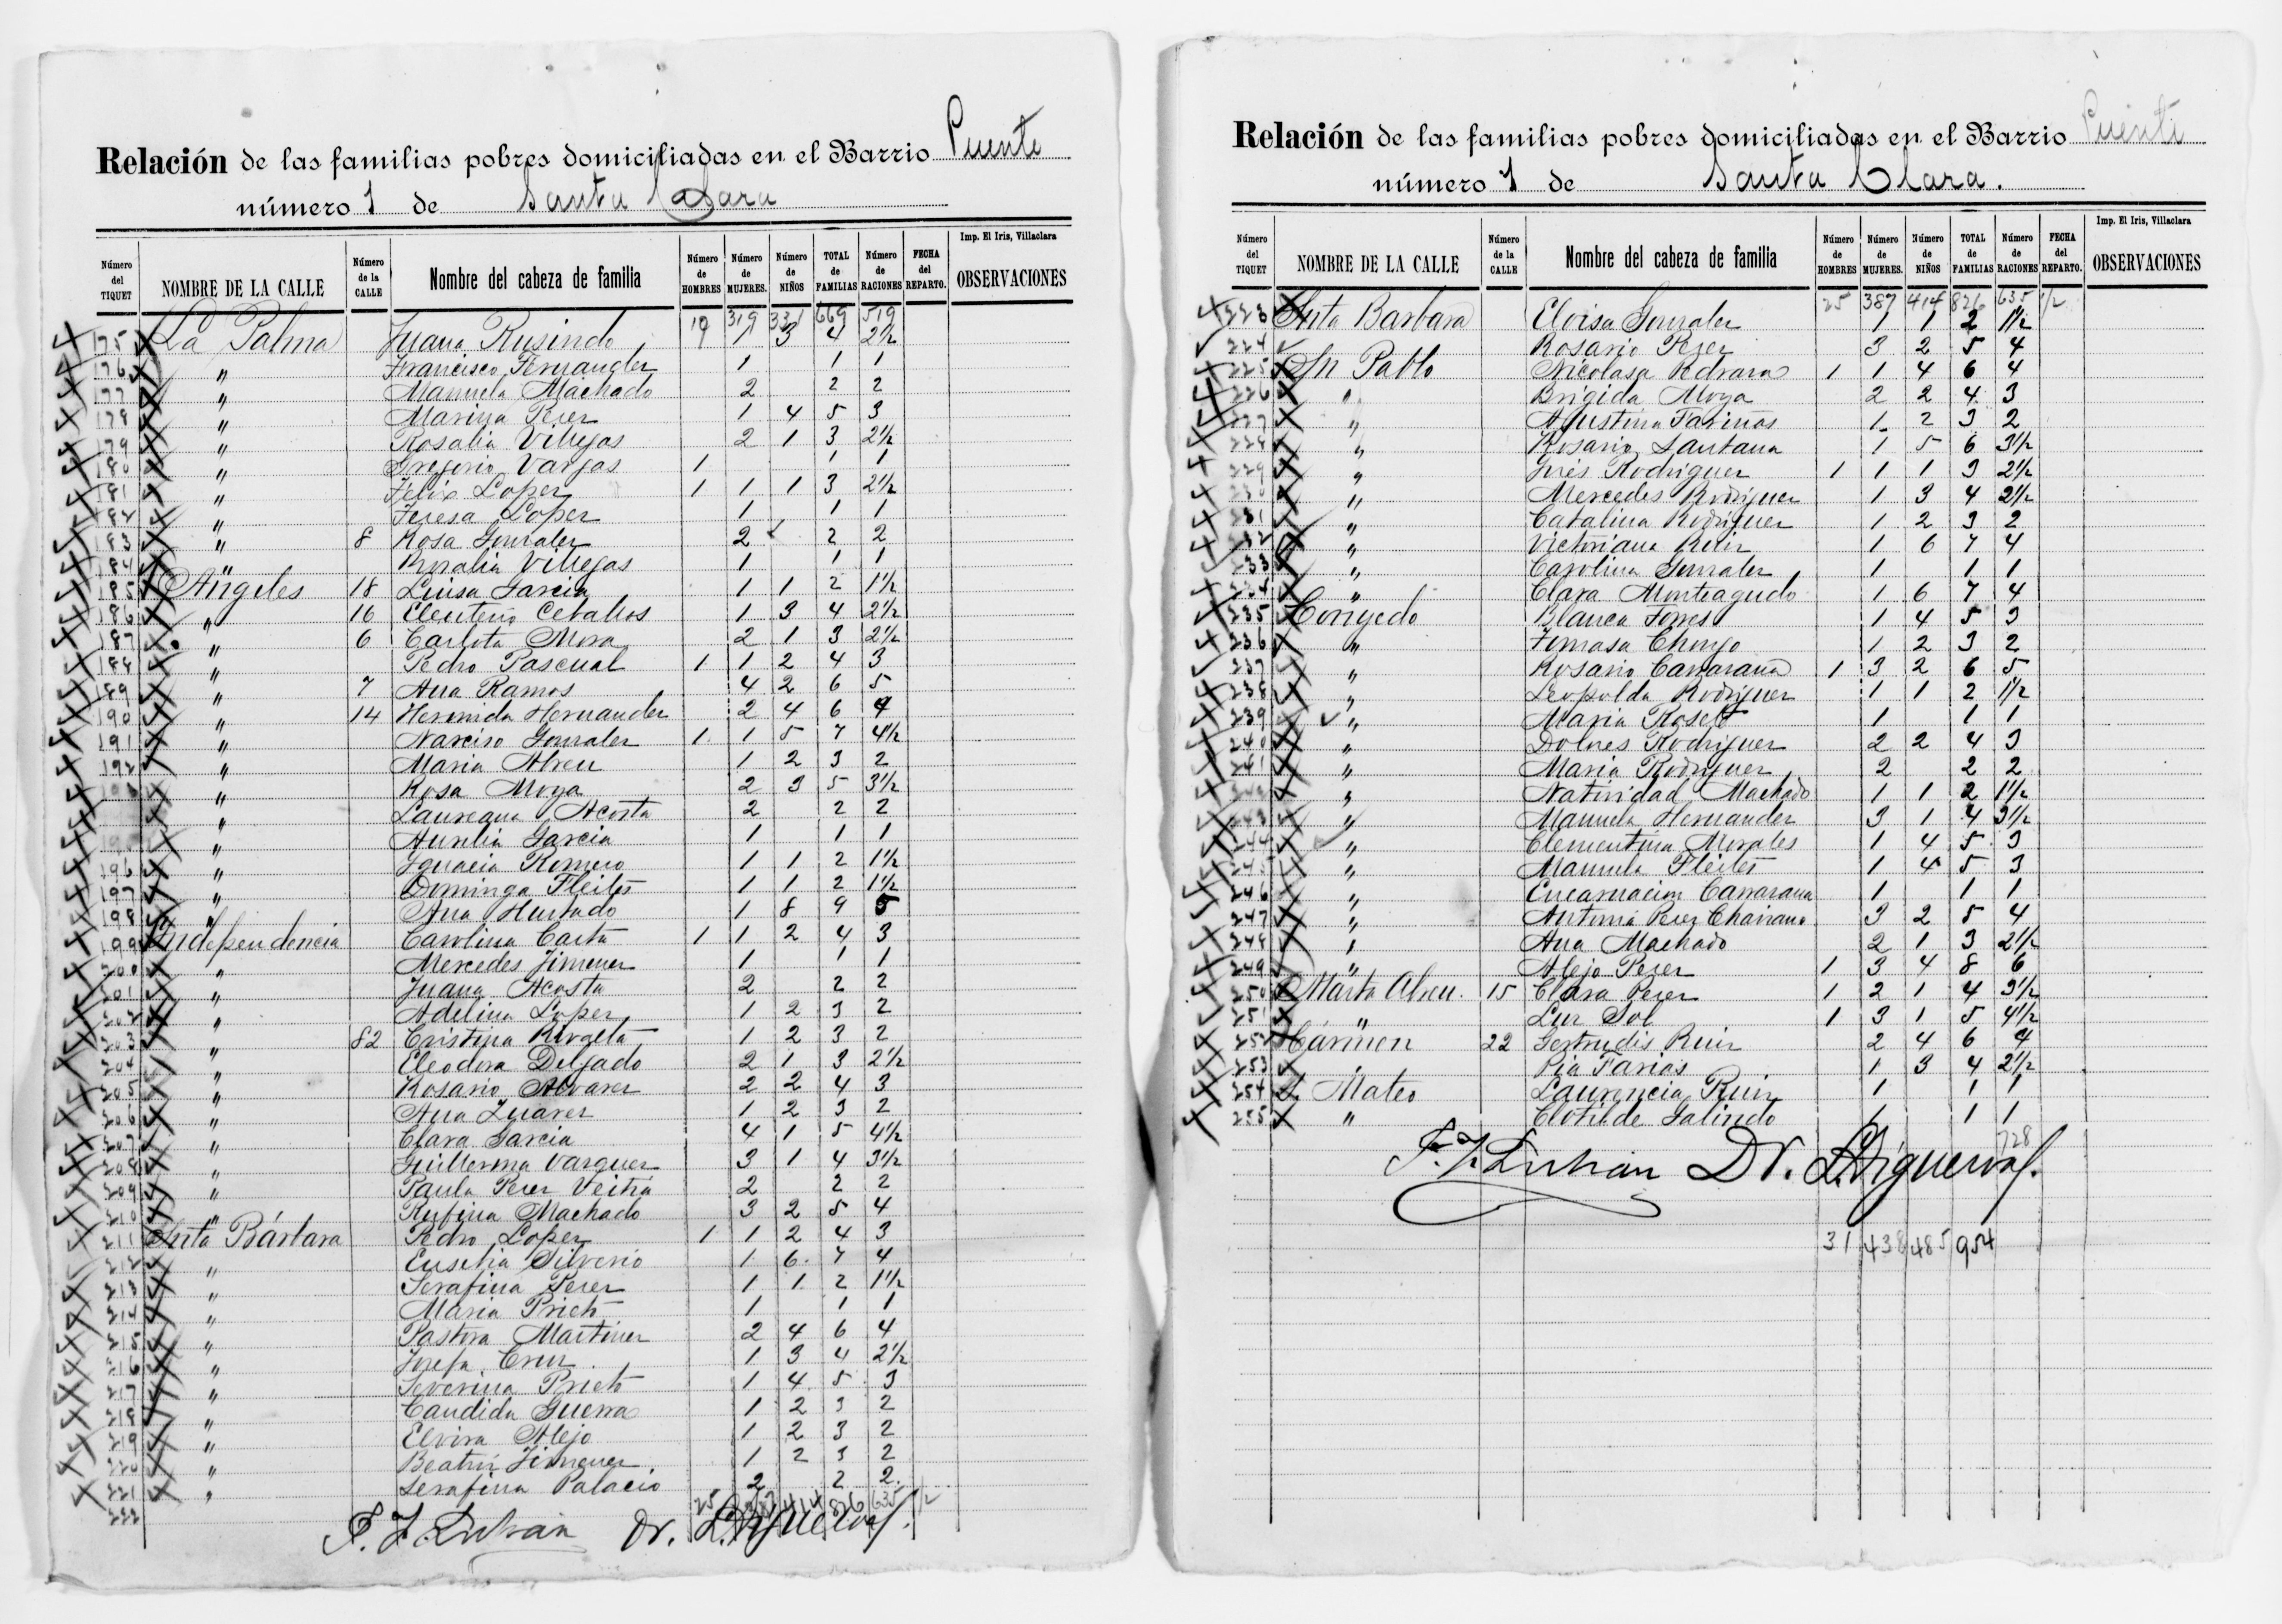 Relación de las familias pobres domiciliadas en el Barrio Puente
número 1 de Santa Clara
Imp. El Iris, Villaclara
Número del TIQUET NOMBRE DE LA CALLE Número de la CALLE Nombre del cabeza de familia Número de HOMBRES Número de MUJERES. Número de NIÑOS TOTAL de FAMILIAS Número de RACIONES FECHA del REPARTO. OBSERVACIONES
19 319 331 669 519
175 La Palma Juana Rusindo 1 3 4 2½
176 " Francisco Fernandez 1 1 1
177 " Manuela Machado 2 2 2
178 " Marina Perez 1 4 5 3
179 " Rosalia Villegas 2 1 3 2½
180 " Gregorio Vargas 1 1 1
181 " Felix Lopez 1 1 1 3 2½
182 " Teresa Lopez 1 1 1
183 " 8 Rosa Gonzalez 2 2 2
184 " Rosalia Villegas 1 1 1
185 Angeles 18 Luisa Garcia 1 1 2 1½
186 " 16 Eleuterio Ceballos 1 3 4 2½
187 " 6 Carlota Mora 2 1 3 2½
188 " Pedro Pascual 1 1 2 4 3
189 " 7 Ana Ramos 4 2 6 5
190 " 14 Herminida Hernandez 2 4 6 4
191 " Narciso Gonzalez 1 1 5 7 4½
192 " Maria Abreu 1 2 3 2
" Rosa Moya 2 3 5 3½
" Laureana Acosta 2 2 2
" Aurelia Garcia 1 1 1
196 " Ignacia Romero 1 1 2 1½
197 " Dominga Fleites 1 1 2 1½
198 " Ana Hurtado 1 8 9 5
199 Independencia Carolina Carta 1 1 2 4 3
200 " Mercedes Jimenez 1 1 1
201 " Juana Acosta 2 2 2
202 " Adelina Lopez 1 2 3 2
203 " 82 Cristina Rivalta 1 2 3 2
204 " Eleodora Delgado 2 1 3 2½
205 " Rosario Alvarez 2 2 4 3
206 " Ana Zuarez 1 2 3 2
207 " Clara Garcia 4 1 5 4½
208 " Guillerma Vazquez 3 1 4 3½
209 " Paula Perez Veitia 2 2 2
210 " Rufina Machado 3 2 5 4
211 Snta Bárbara Pedro Lopez 1 1 2 4 3
212 " Eusebia Silverio 1 6 7 4
213 " Serafina Perez 1 1 2 1½
214 " Maria Prieto 1 1 1
215 " Pastora Martinez 2 4 6 4
216 " Josefa Cruz 1 3 4 2½
217 " Severina Prieto 1 4 5 3
218 " Candida Guerra 1 2 3 2
219 " Elvira Alejo 1 2 3 2
220 " Beatriz Jimenez 1 2 3 2
221 " Serafina Palacio 2 2 2
222
25 387 414 826 635 ½
Dr.
Relación de las familias pobres domiciliadas en el Barrio Puente
número 1 de Santa Clara.
Imp. El Iris, Villaclara
Número del TIQUET NOMBRE DE LA CALLE Número de la CALLE Nombre del cabeza de familia Número de HOMBRES Número de MUJERES. Número de NIÑOS TOTAL de FAMILIAS Número de RACIONES FECHA del REPARTO. OBSERVACIONES
25 387 414 826 635 ½
223 Snta Barbara Eloisa Gonzalez 1 1 2 1½
224 Rosario Perez 3 2 5 4
225 Sn Pablo Nicolasa Pedraza 1 1 4 6 4
226 " Brigida Moya 2 2 4 3
227 " Agustina Fariñas 1 2 3 2
228 " Rosario Santana 1 5 6 3½
229 " Inés Rodriguez 1 1 1 3 2½
230 " Mercedes Rodriguez 1 3 4 2½
231 " Catalina Rodriguez 1 2 3 2
232 " Victoriana 1 6 7 4
233 " Carolina Gonzalez 1 1 1
234 " Clara Monteagudo 1 6 7 4
235 Conyedo Blanca Torres 1 4 5 3
236 " Tomasa 1 2 3 2
237 " Rosario Carrazana 1 3 2 6 5
238 " Leopolda Rodriguez 1 1 2 1½
239 " Maria Rosell 1 1 1
240 " Dolores Rodriguez 2 2 4 3
241 " Maria Rodriguez 2 2 2
242 " Natividad Machado 1 1 2 1½
243 " Manuela Hernandez 3 1 4 3½
244 " Clementina Morales 1 4 5 3
245 " Manuela Fleites 1 4 5 3
246 " Encarnacion Carrazana 1 1 1
247 " Antonia Perez Chaviano 3 2 5 4
248 " Ana Machado 2 1 3 2½
249 " Alejo Perez 1 3 4 8 6
250 Marta Abreu. 15 Clara Perez 1 2 1 4 3½
251 " Luz Sol 1 3 1 5 4½
252 Cármen 22 Gertrudis Ruiz 2 4 6 4
253 " Pia Farias 1 3 4 2½
254 S. Mateo Laurencia Ruiz 1 1 1
255 " Clotilde Galindo 1 1 1
728
Dr.
31 438 485 954